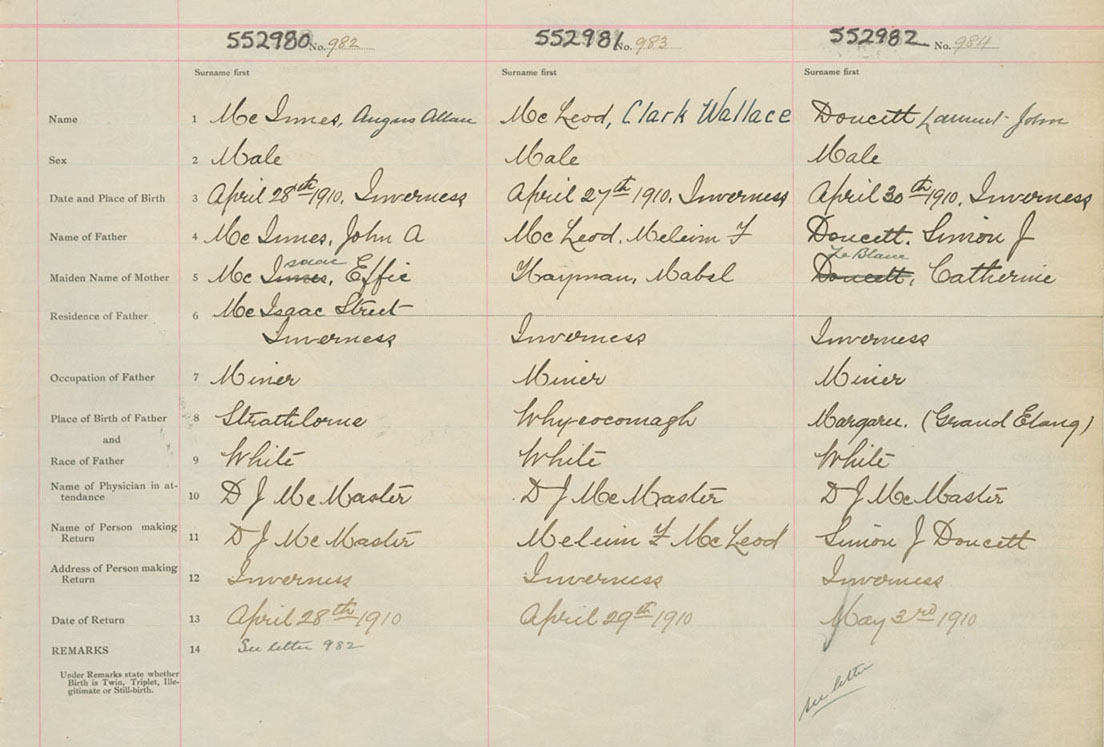 552980 No. 982 552981 No. 983 552982 No. 984
Surname first Surname first Surname first
Name 1 Mc Innes, Angus Allan Mc Leod, Clark Wallace Doucett John
Sex 2 Male Male Male
Date and Place of Birth 3 April 28th 1910, Inverness April 27th 1910, Inverness April 30th 1910, Inverness
Name of Father 4 Mc Innes, John A Mc Leod, Melvin F Doucett, Simon J
saac Le Blanc
Maiden Name of Mother 5 Mc Innes, Effie Hayman, Mabel Doucett, Catherine
Residence of Father 6 Mc Isaac Street
Inverness Inverness Inverness
Occupation of Father 7 Miner Miner Miner
Place of Birth of Father 8 Strathlorne Whycocomagh Margaree. (Grand Etang)
and
Race of Father 9 White White White
Name of Physician in at-
tendance 10 D J McMaster D J McMaster D J McMaster
Name of Person making
Return 11 D J McMaster Melvin F McLeod Simon J Doucett
Address of Person making
Return 12 Inverness Inverness Inverness
Date of Return 13 April 28th 1910 April 29th 1910 May 3rd 1910
REMARKS 14 See letter 982
Under Remarks state whether
Birth is Twin, Triplet, Ille-
gitimate or Still-birth.
see letter